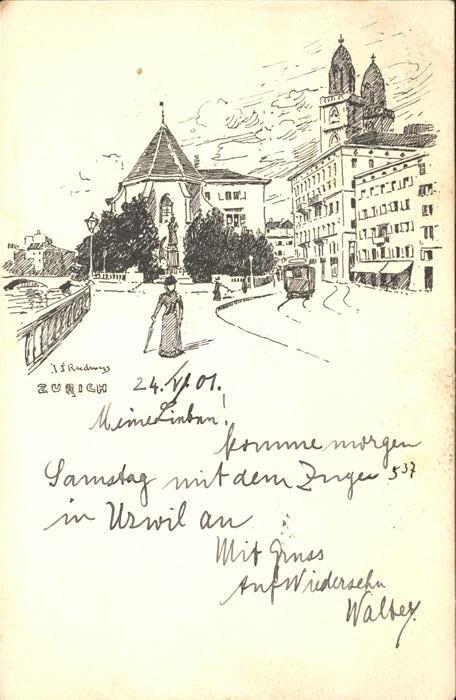 ZURICH 24. V. 01.
Meine Lieben!
komme morgen
Samstag mit dem Zuge 5 37
in Uzwil an
Mit Gruss
Auf Wiedersehn
Walter.